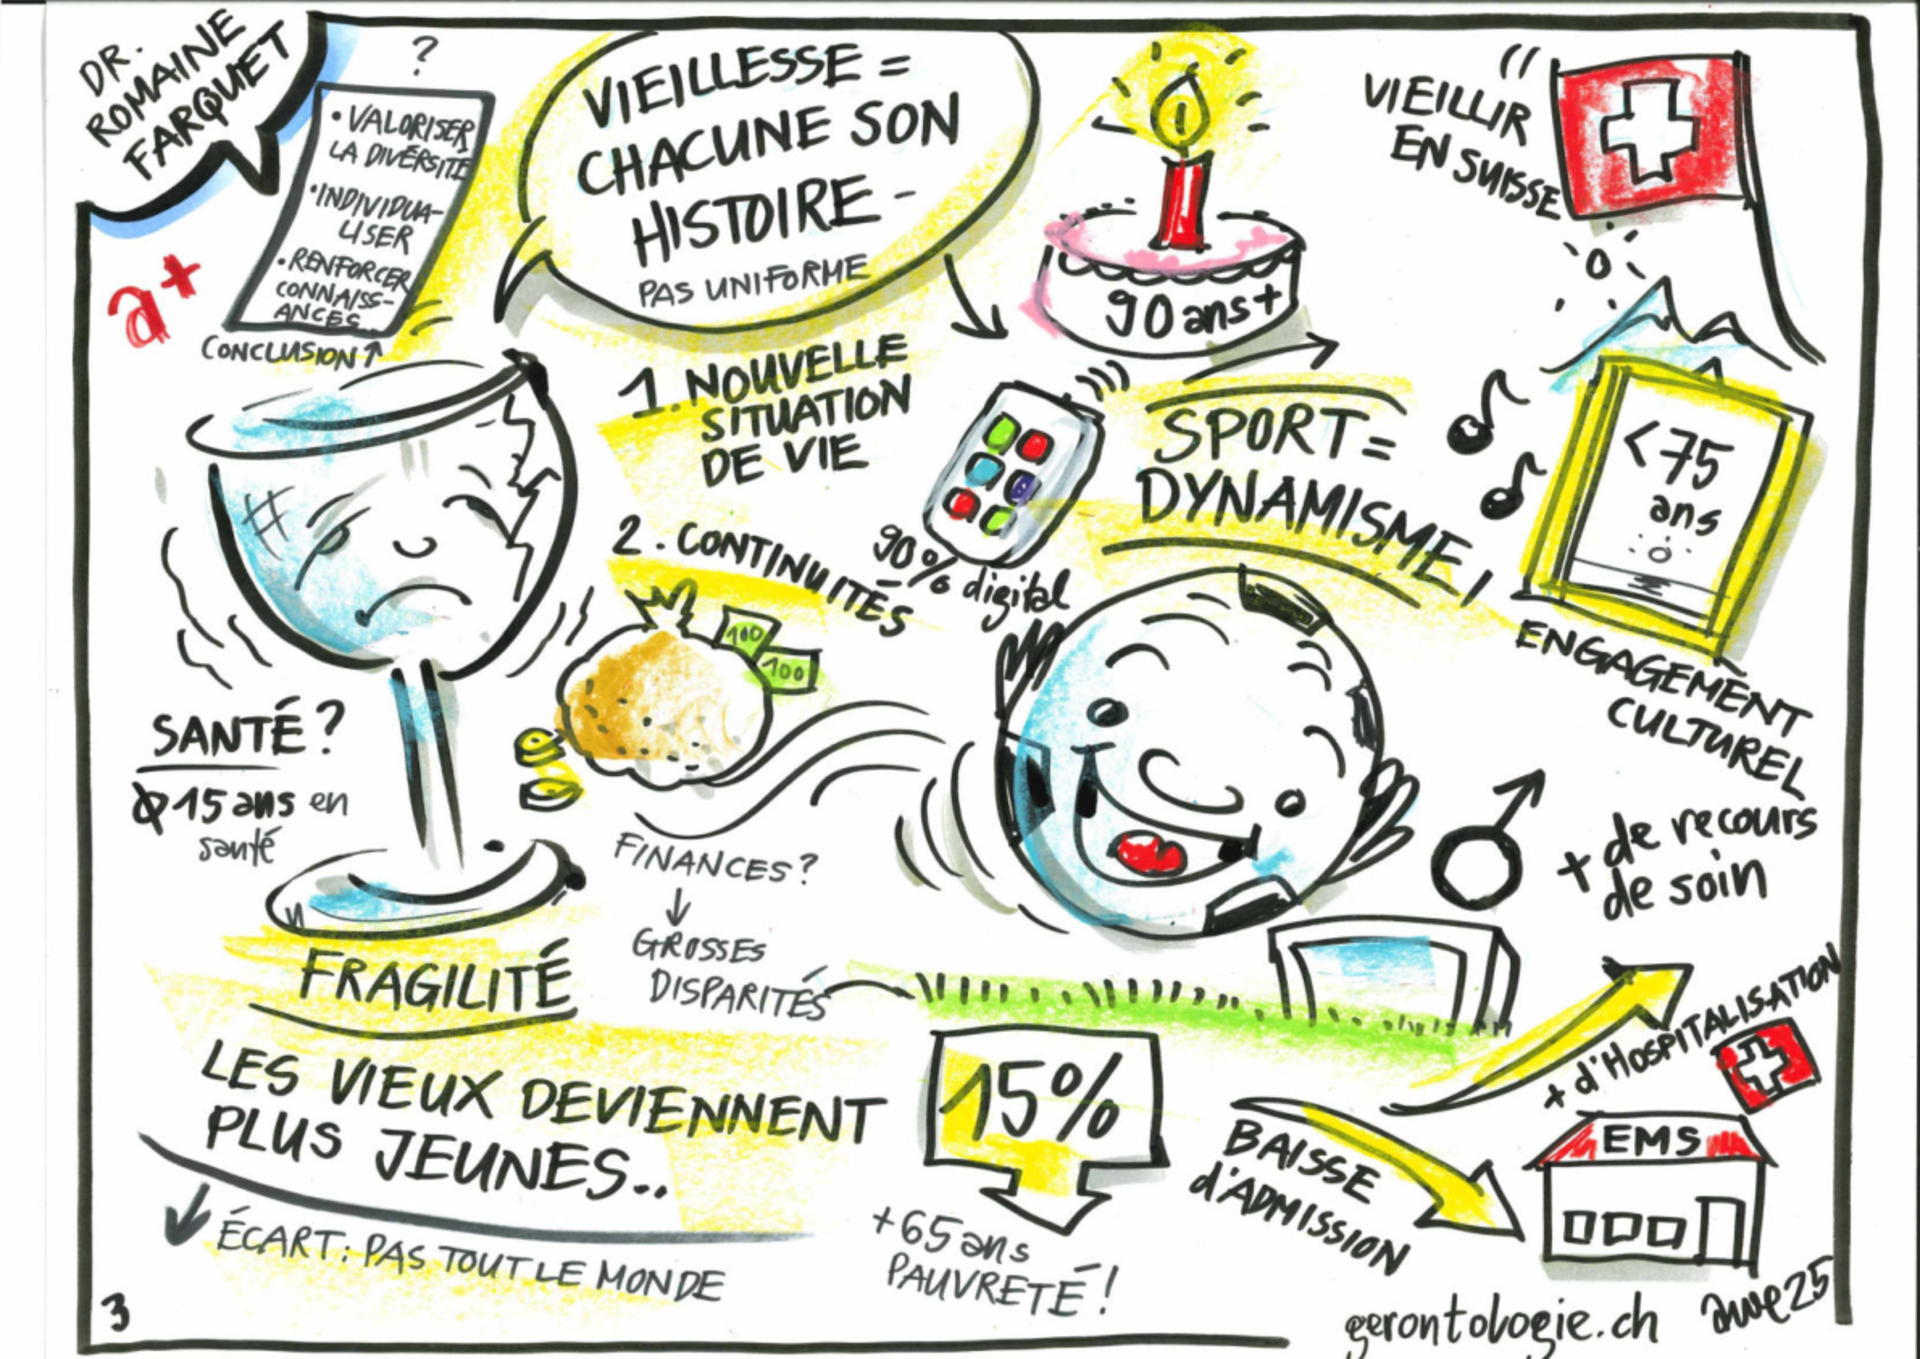 DR.
ROMAINE
FARQUET
a+
?
• VALORISER
LA DIVERSITÉ
• INDIVIDUA-
LISER
• RENFORCER
CONNAISS-
ANCES
CONCLUSION ↑
VIEILLESSE =
CHACUNE SON
HISTOIRE -
PAS UNIFORME
90 ans+
VIEILLIR
EN SUISSE
1. NOUVELLE
SITUATION
DE VIE
2. CONTINUITÉS
90% digital
SPORT =
DYNAMISME!
<75
ans
ENGAGEMENT
CULTUREL
SANTÉ?
Φ 15 ans en
santé
100
100
FINANCES?
↓
GROSSES
DISPARITÉS
♂ + de recours
de soin
FRAGILITÉ
LES VIEUX DEVIENNENT
PLUS JEUNES..
↓ ÉCART: PAS TOUT LE MONDE
15%
+65 ans
PAUVRETÉ!
+ d'HOSPITALISATION
BAISSE
d'ADMISSION
EMS
3
gerontologie.ch
awe25